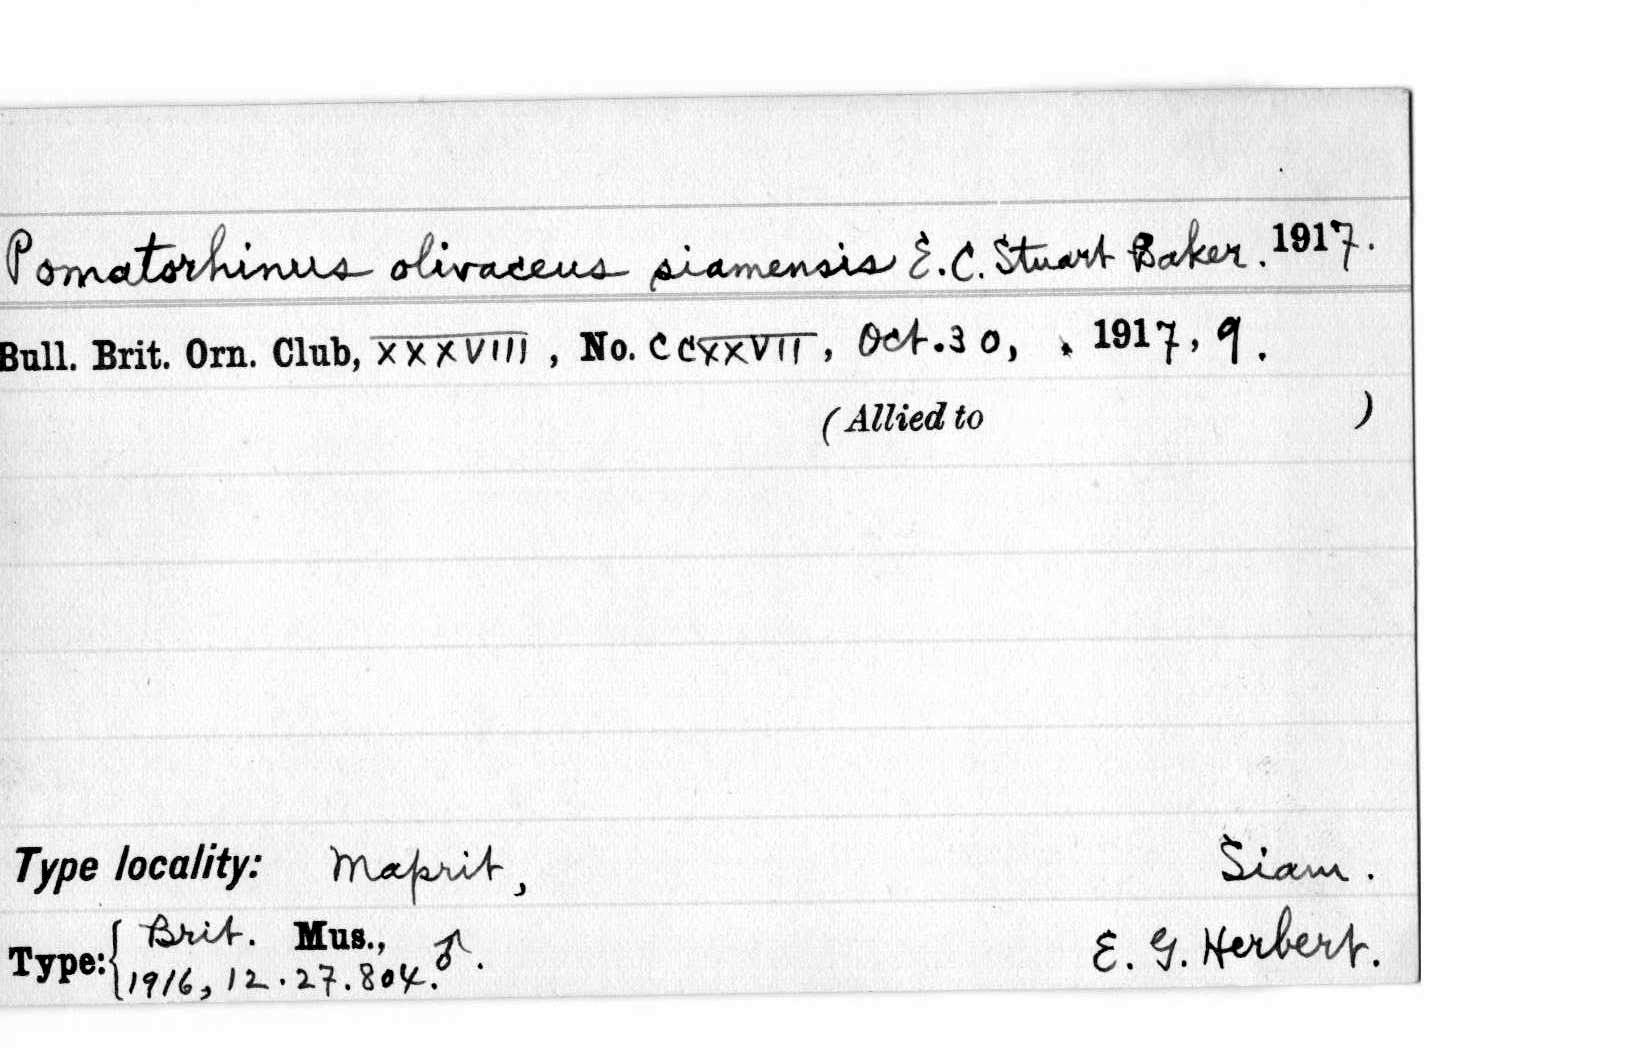 Pomatorhinus olivaceus siamensis E.C. Stuart Baker. 1917.
Bull. Brit. Orn. Club, XXXVIII, No. CCXXVII, Oct. 30, , 1917, 9.
(Allied to )
Type locality: Maprit, Siam.
Type: { Brit. Mus., ♂. E. G. Herbert.
1916, 12.27.804.